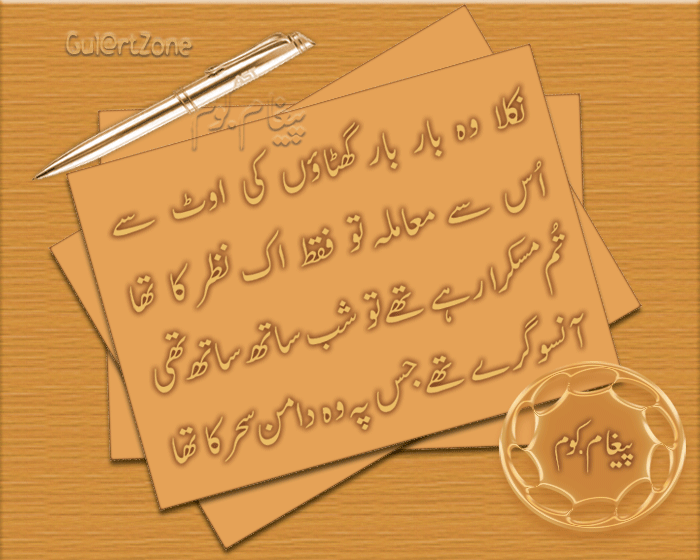 Gul@rtZone
پیغام.کوم
نکلا وہ بار بار گھٹاؤں کی اوٹ سے
اُس سے معاملہ تو فقط اک نظر کا تھا
تُم مسکرا رہے تھے تو شب ساتھ ساتھ تھی
آنسو گرے تھے جس پہ وہ دامن سحر کا تھا
پیغام.کوم